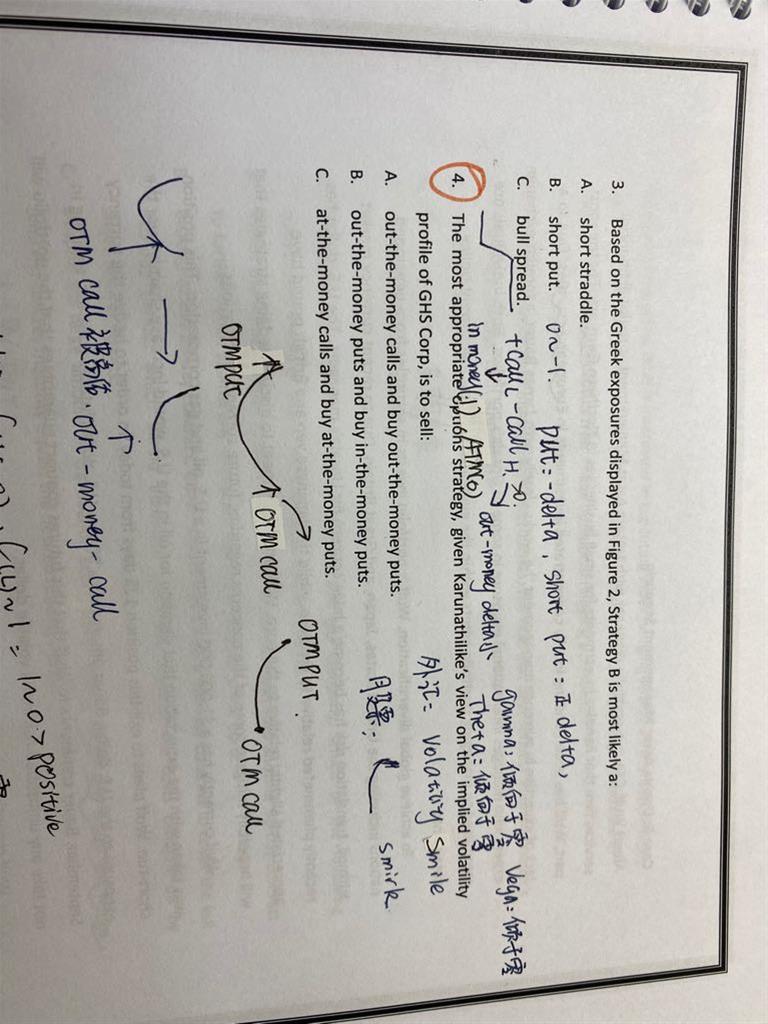 3. Based on the Greek exposures displayed in Figure 2, Strategy B is most likely a:
A. short straddle.
B. short put. 0~-1. put=-delta, short put=正delta,
C. bull spread. +call L -call H >0.
gamma=倾向于零 Vega=倾于零
in money(1) ATM(0) out-money delta小 Theta=倾向于零
4. The most appropriate options strategy, given Karunathilike's view on the implied volatility
profile of GHS Corp, is to sell:
外汇= Volatility Smile
A. out-the-money calls and buy out-the-money puts.
B. out-the-money puts and buy in-the-money puts.
股票: smirk
C. at-the-money calls and buy at-the-money puts.
OTM PUT.
OTM call
OTM call
OTM PUT
OTM call 被高估. out-money-call
= 1~0 > positive